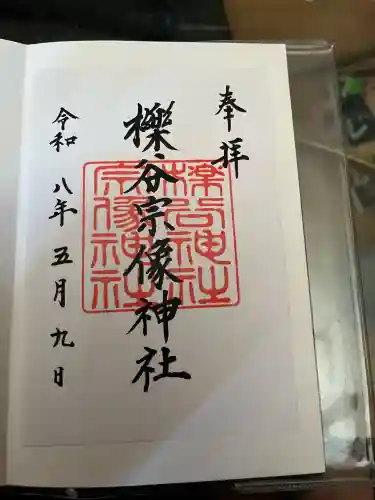 奉拝
櫟谷宗像神社
櫟谷神社
宗像神社
令和八年五月九日